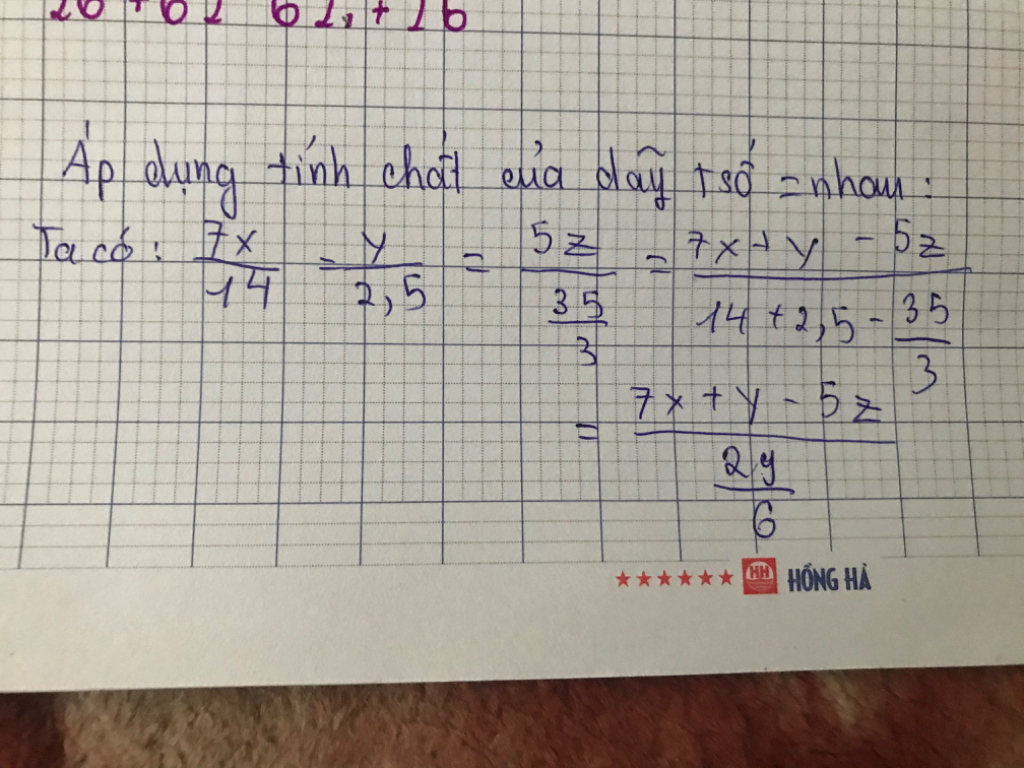 Áp dụng tính chất của dãy tsố = nhau:
Ta có: 7x/14 = y/2,5 = 5z/(35/3) = (7x + y - 5z)/(14 + 2,5 - 35/3)
= (7x + y - 5z)/(29/6)
HH HỒNG HÀ